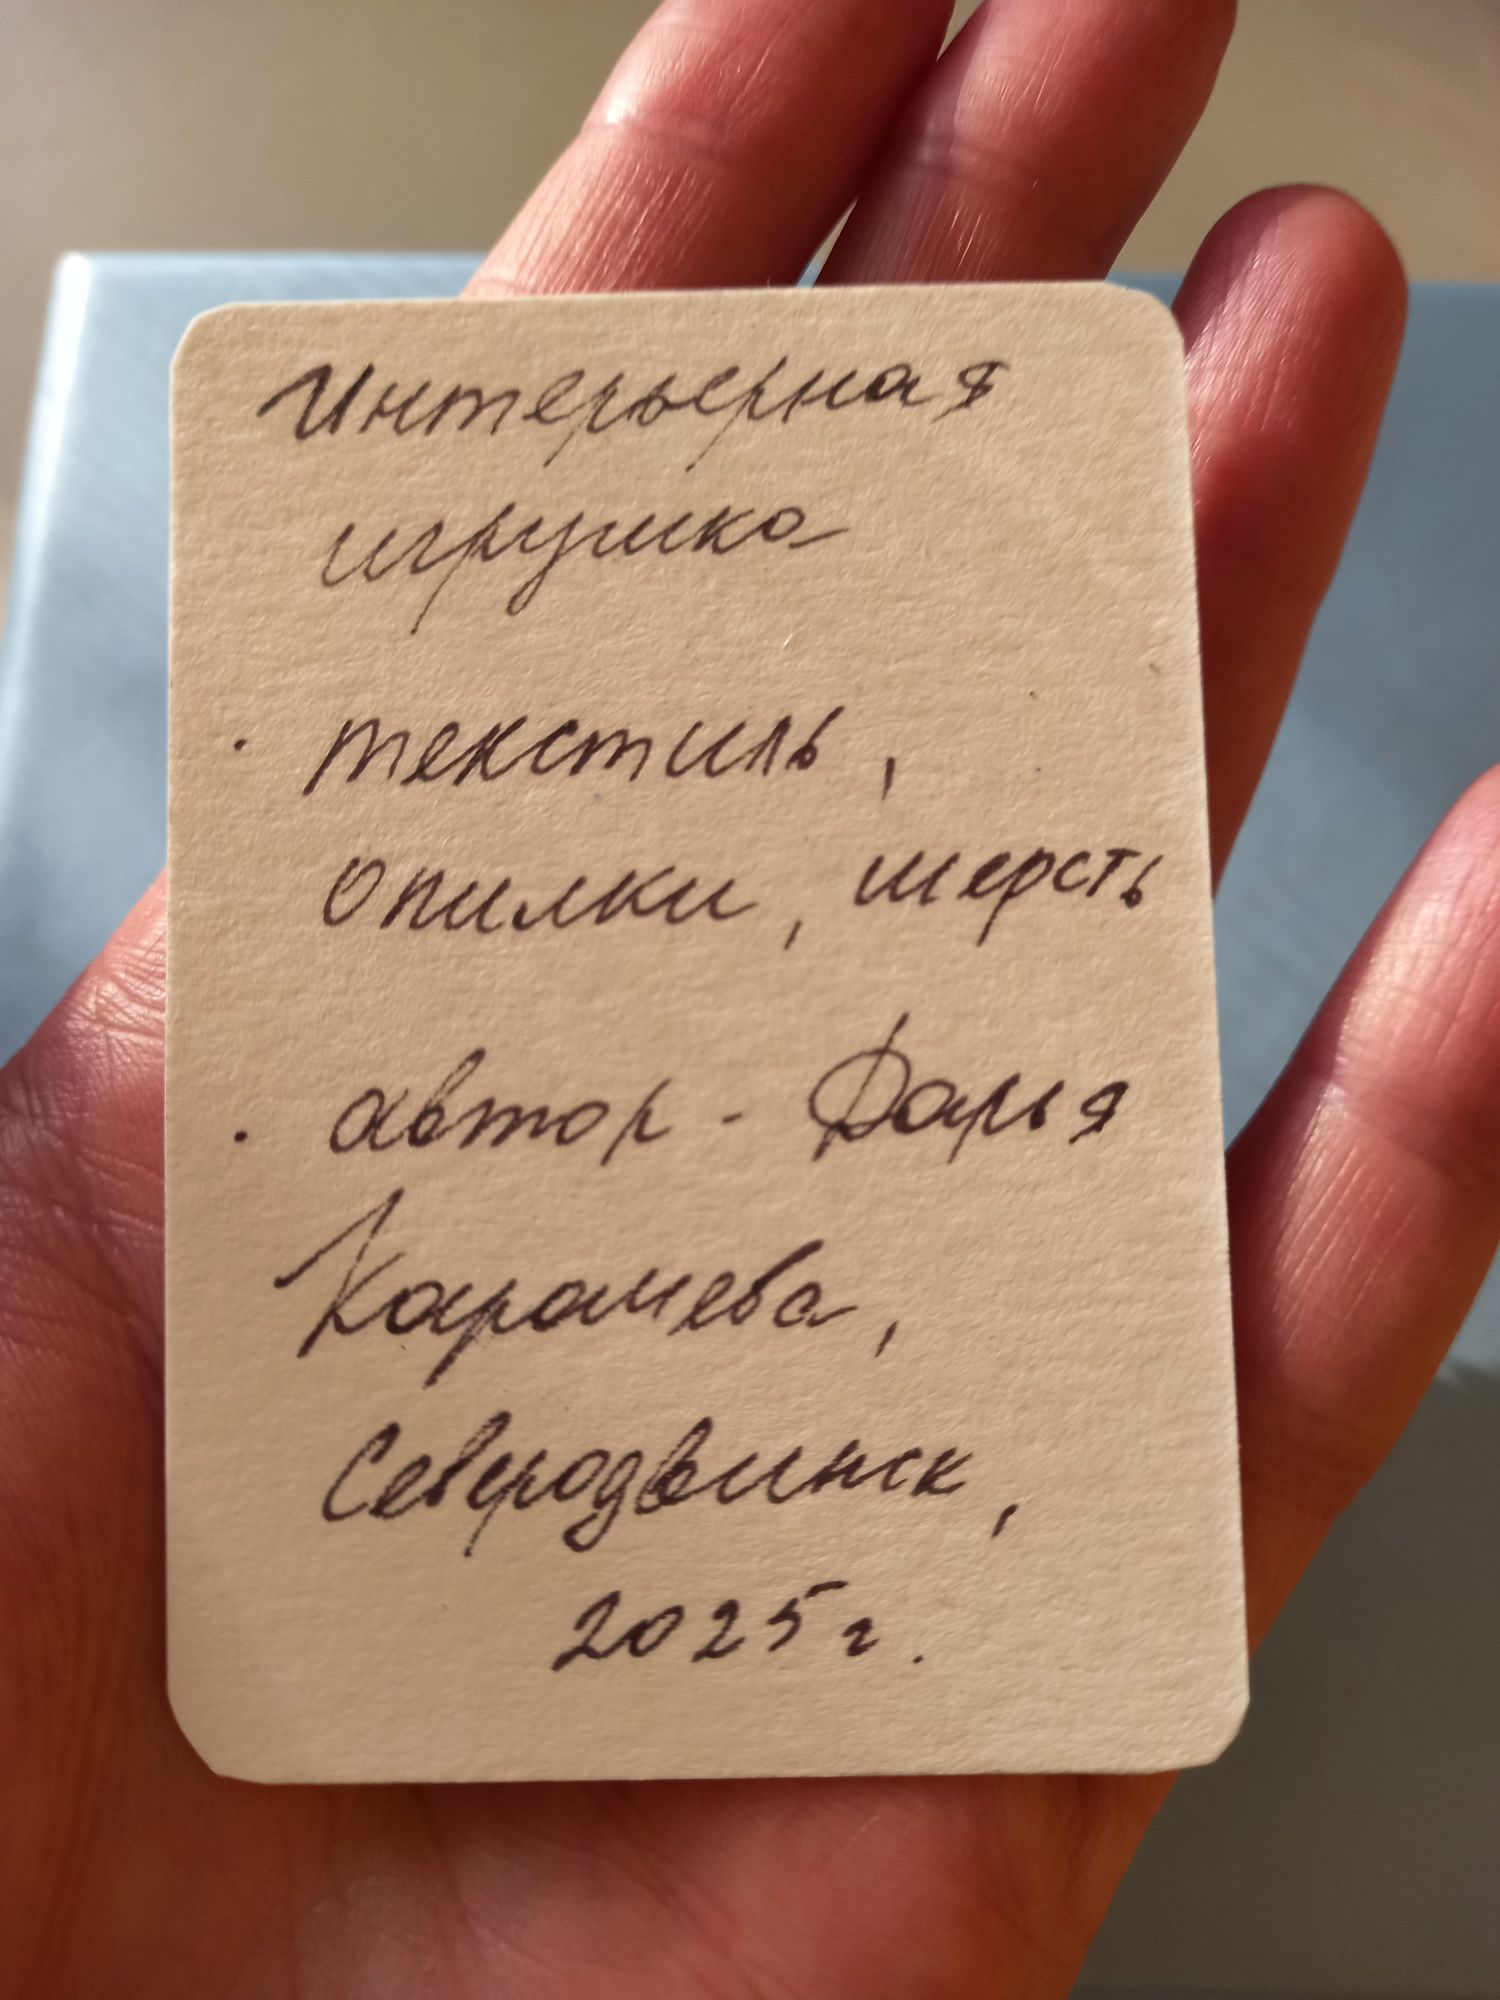 Интерьерная
игрушка
· текстиль,
опилки, шерсть
· автор - Дарья
Карамева,
Северодвинск,
2025 г.